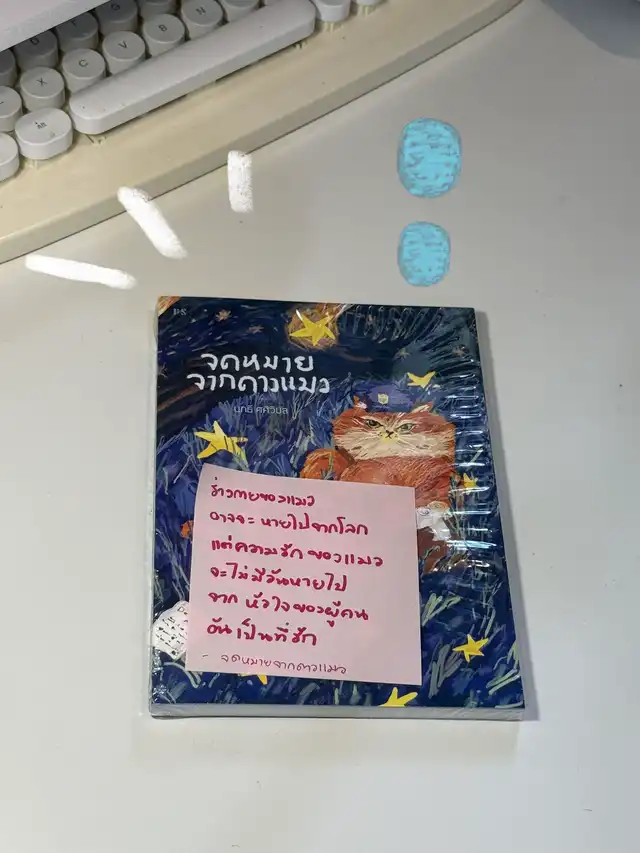 X
C
V
B
N
P.S.
จดหมาย
จากดาวแมว
ร่างกายของแมว
อาจจะหายไปจากโลก
แต่ความรักของแมว
จะไม่มีวันหายไป
จาก หัวใจของผู้คน
อันเป็นที่รัก
- จดหมายจากดาวแมว